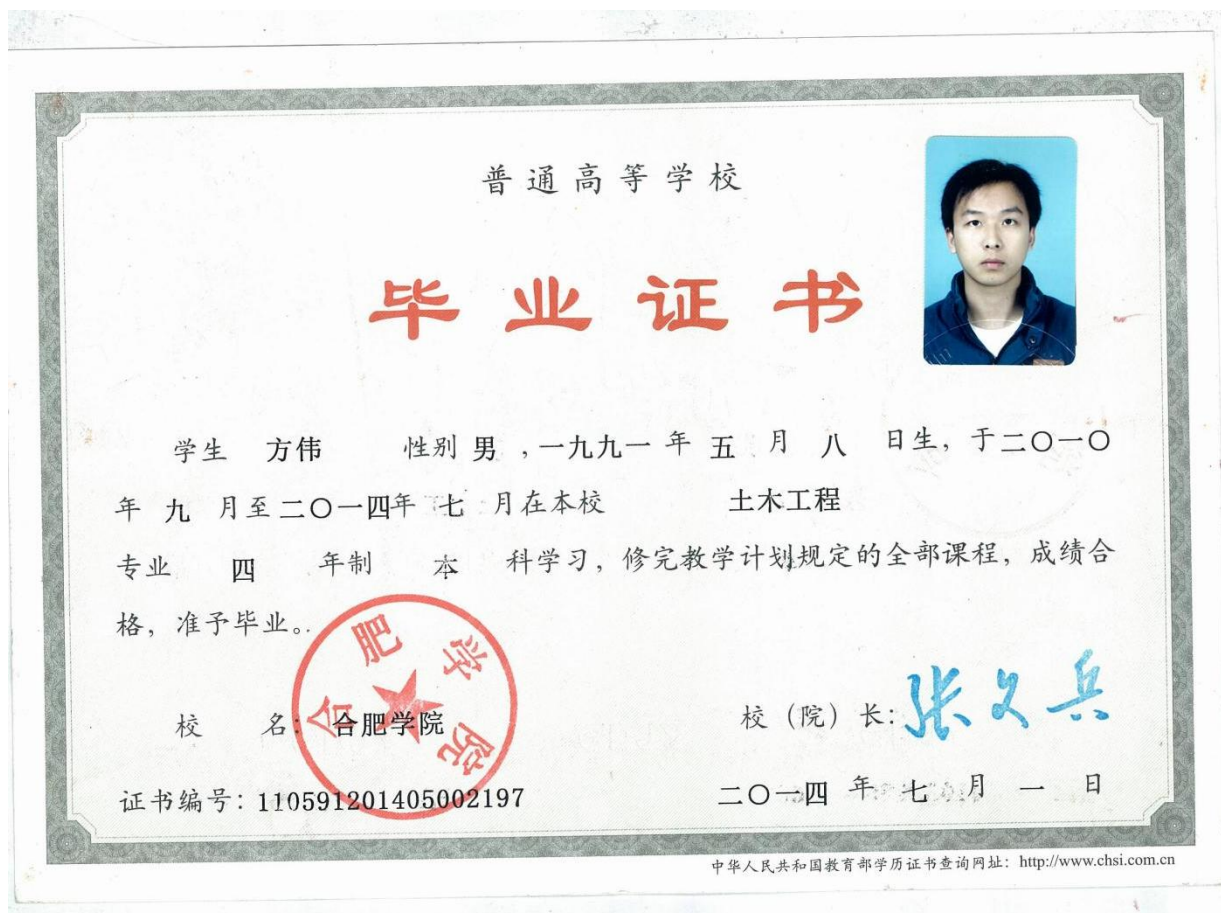 普通高等学校
毕业证书
学生 方伟 性别 男 ,一九九一 年 五 月 八 日生，于二〇一〇
年 九 月至二〇一四年 七 月在本校 土木工程
专业 四 年制 本 科学习，修完教学计划规定的全部课程，成绩合
格，准予毕业。
合肥学院
校 名：合肥学院 校（院）长：
证书编号：110591201405002197 二〇一四 年 七 月 一 日
中华人民共和国教育部学历证书查询网址：http://www.chsi.com.cn